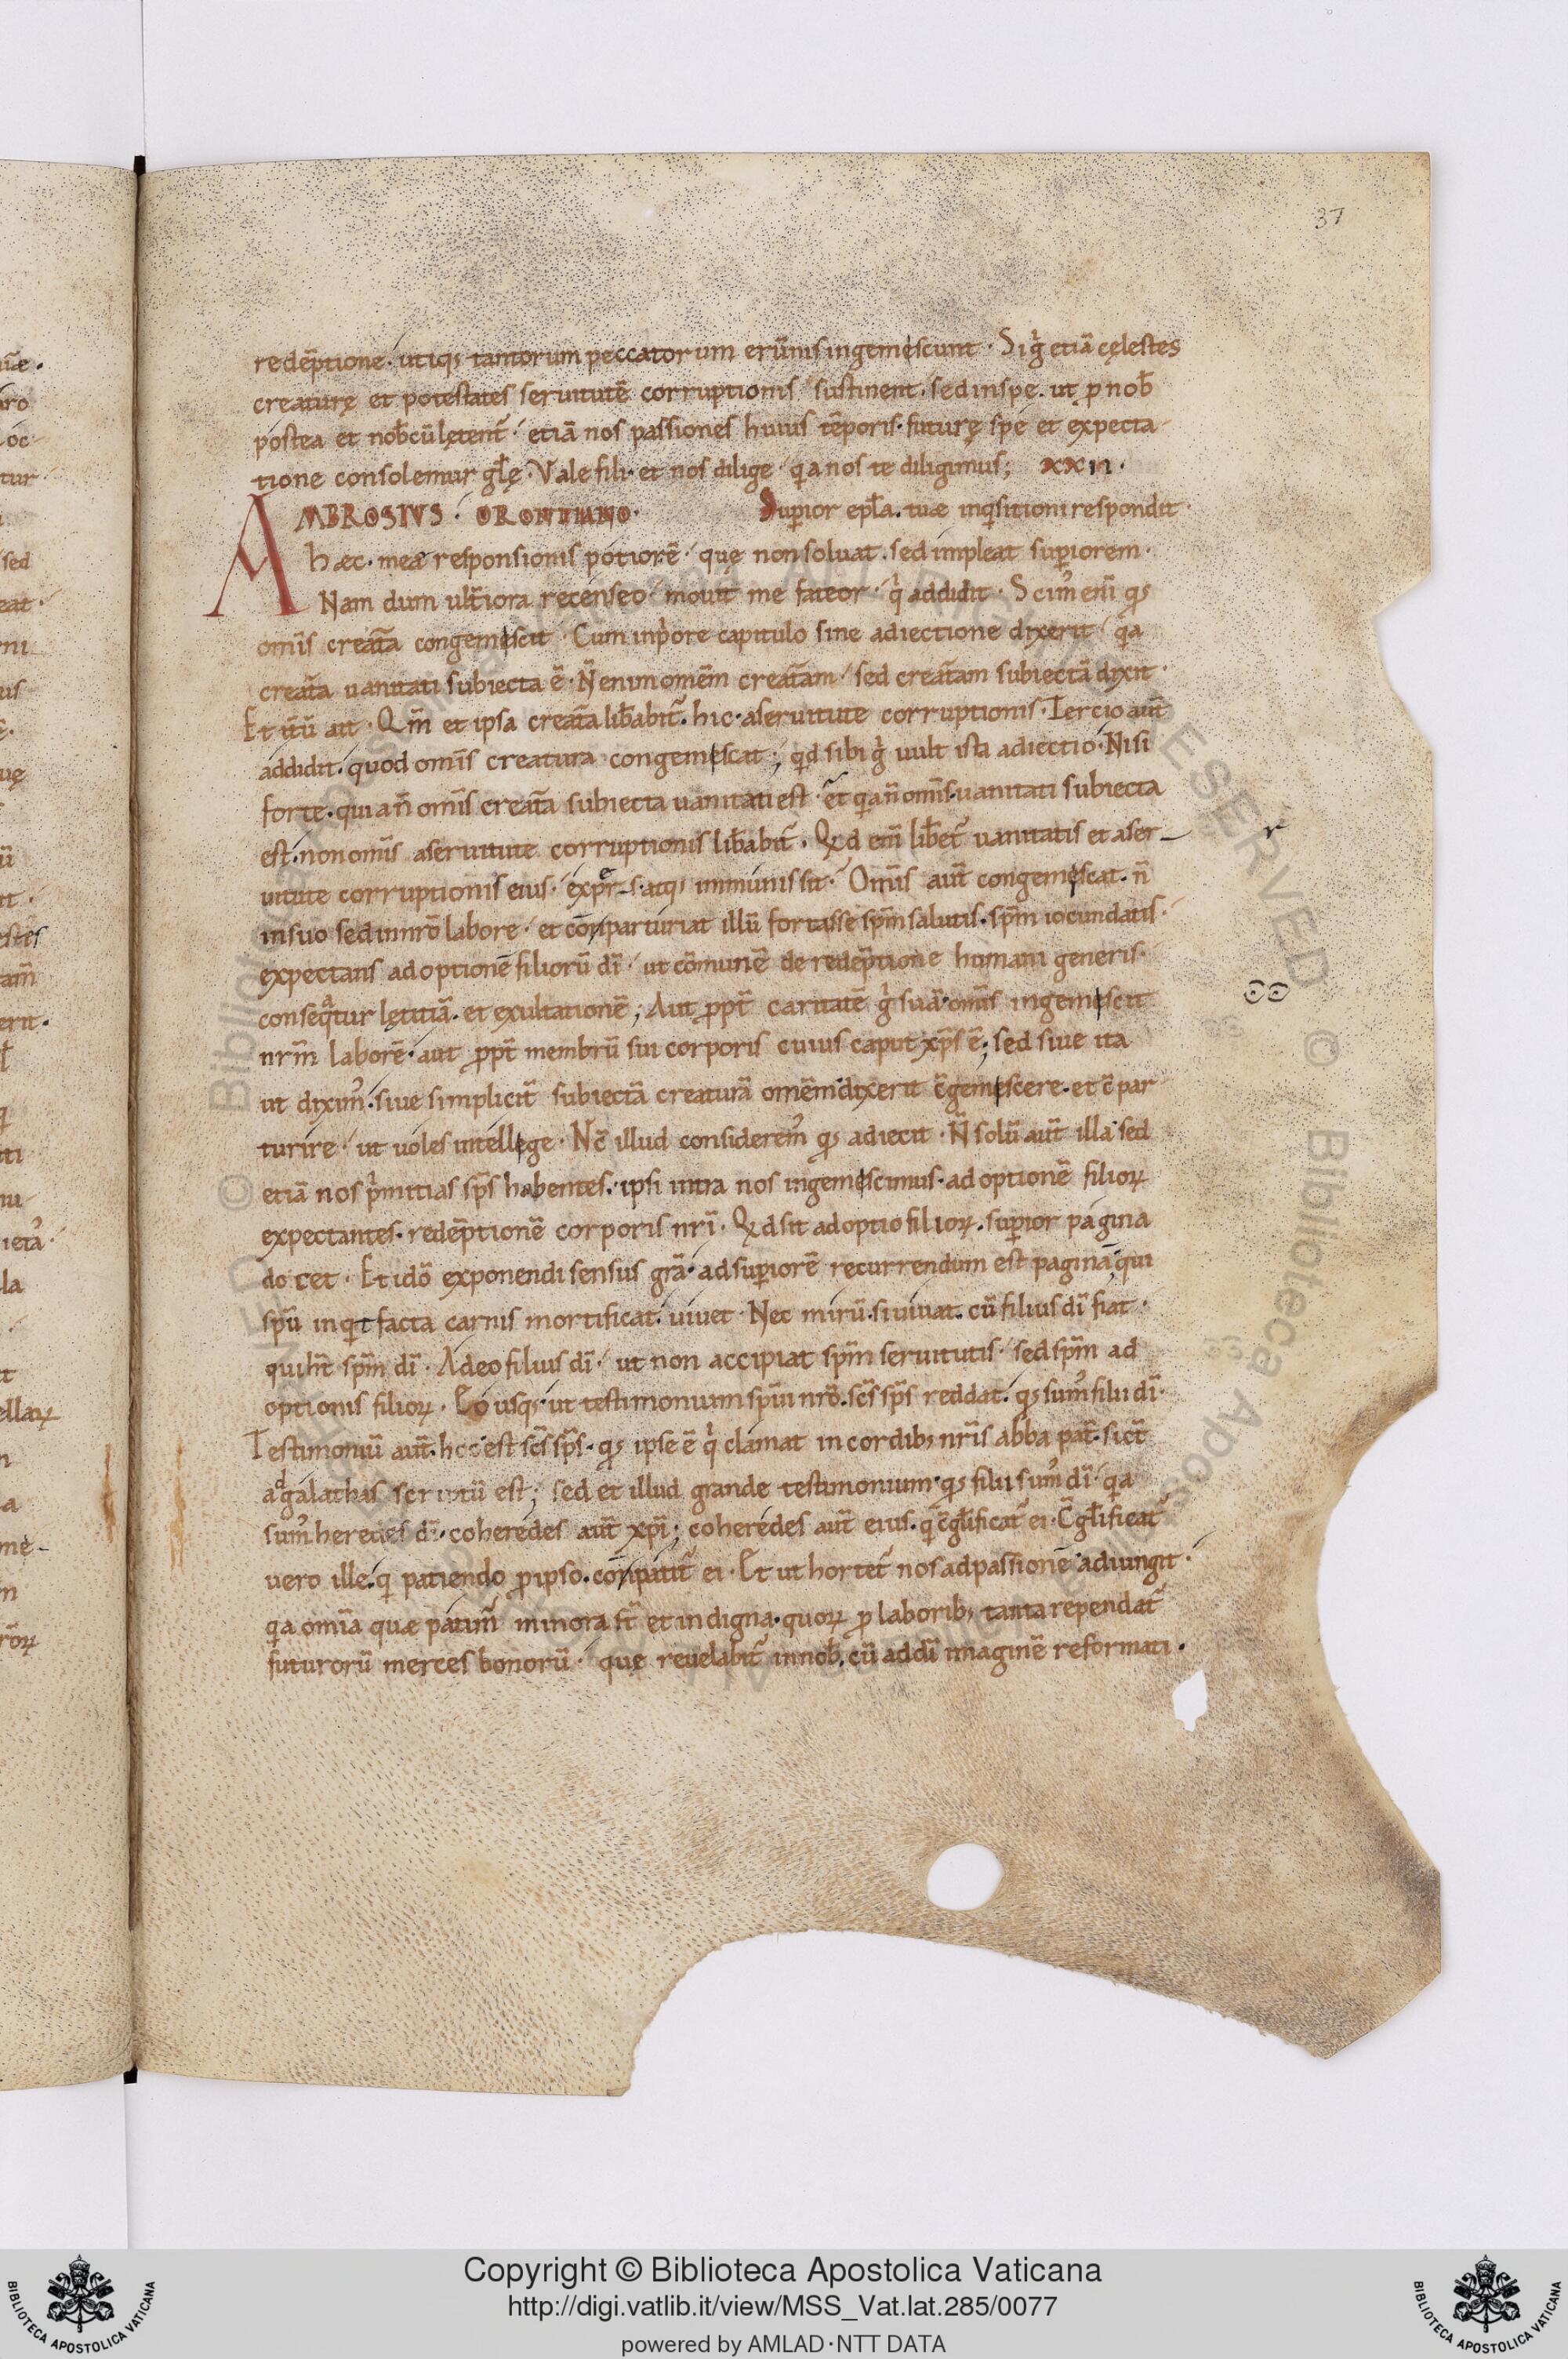 37
redēptione· utiq; tantorum peccatorum erūnis ingemescunt· Si gͦ etiā cęlestes
creaturę et potestates seruitutē corruptionis sustinent· sed in spe· ut ꝓ nob̄
postea et nob̄cū lętent᷑· etiā nos passiones huius tēporis· futurę spe et expecta
tione consolemur gl̄ę· Vale fili· et nos dilige· q̇a nos te diligimus; XXII·
AMBROSIVS· ORONTIANO· Supior epl̄a· tuæ inq̇sitioni respondit·
hæc· meæ responsionis potiorē· quę non soluat· sed impleat supiorem·
Nam dum ult̄iora recenseo· mouit me fateor· q̇ addidit· Scim᷒ eni q;
omīs creat᷑a congemescit· Cum in ṗore capitulo sine adiectione dixerit· q̇a
creat᷑a uanitati subiecta ē· N̄ enim omēm creat᷑am· sed creat᷑am subiectā dixit·
Et itū ait· Qm̄ et ipsa creat᷑a lib̄abit᷑· hic· a seruitute corruptionis· Tercio aut̄
addidit· quod omīs creatura congemescat; qd sibi gͦ uult ista adiectio· Nisi
forte· quia n̄ omīs creat᷑a subiecta uanitati est· et q̇a n̄ omīs uanitati subiecta
est· non omīs a seruitute corruptionis lib̄abit᷑· Qd eni lib̄et᷑ uanitatis et a ser r
uitute corruptionis eius· exp̄rs atq; immunis sit· Omīs aut̄ congemescat· n̄
in suo sed in nr̄o labore· et cōparturiat illū fortasse sp̄m salutis· sp̄m iocundatis·
expectans adoptionē filiorū dī· ut cōmunē de redēptione humani generis·
conseq̇tur lętitiā· et exultationē; Aut ꝓpt̄ caritatē gͦ suā· omīs ingemescit
nr̄m laborē· aut ꝓpt̄ membrū sui corporis cuius caput xp̄s ē; sed siue ita
ut dixim᷒· siue simplicit̄ subiectā creaturā omēm dixerit cōgemescere· et cō par
turire· ut uoles intellege· Nc̄ illud considerem᷒ q; adiecit· N̄ solū aut̄ illa sed
etiā nos ṗmitias sp̄s habentes· ipsi intra nos ingemescimus· adoptionē filioꝝ
expectantes· redēptionē corporis nr̄i· Qd sit adoptio filioꝝ· supior pagina
docet· Et idō exponendi sensus grā· ad supiorē recurrendum est paginā qui
sp̄u inq̇t facta carnis mortificat· uiuet· Nec mirū· si uiuat· cū filius dī fiat·
qui ht̄ sp̄m dī· Adeo filius dī· ut non accipiat sp̄m seruitutis· sed sp̄m ad
optionis filioꝝ· Eo usq; ut testimonium sp̄ui nr̄o· sc̄s sp̄s reddat· q; sum᷒ filii dī·
Testimoniū aut̄· hoc est sc̄s sp̄s· q; ipse ē q̇ clamat in cordib; nr̄is abba pat̄· sic̄t
ad galathas scriptū est; sed et illud grande testimonium· q; filii sum᷒ dī· q̇a
sum᷒ heredes dī· coheredes aut̄ xp̄i; coheredes aut̄ eius· q̇ cōgl̄ificat᷑ ei· Cōgl̄ificat᷑
uero ille· q̇ patiendo ꝓ ipso· cōpatit᷑ ei· Et ut hortet᷑ nos ad passionē adiungit·
q̇a omīa quæ patim᷑ minora st̄ et indigna· quoꝝ ꝓ laborib; tanta rependat᷑
futurorū merces bonorū· quę reuelabit᷑ in nob̄· cū ad dī imaginē reformati·
Copyright © Biblioteca Apostolica Vaticana
http://digi.vatlib.it/view/MSS_Vat.lat.285/0077
powered by AMLAD·NTT DATA